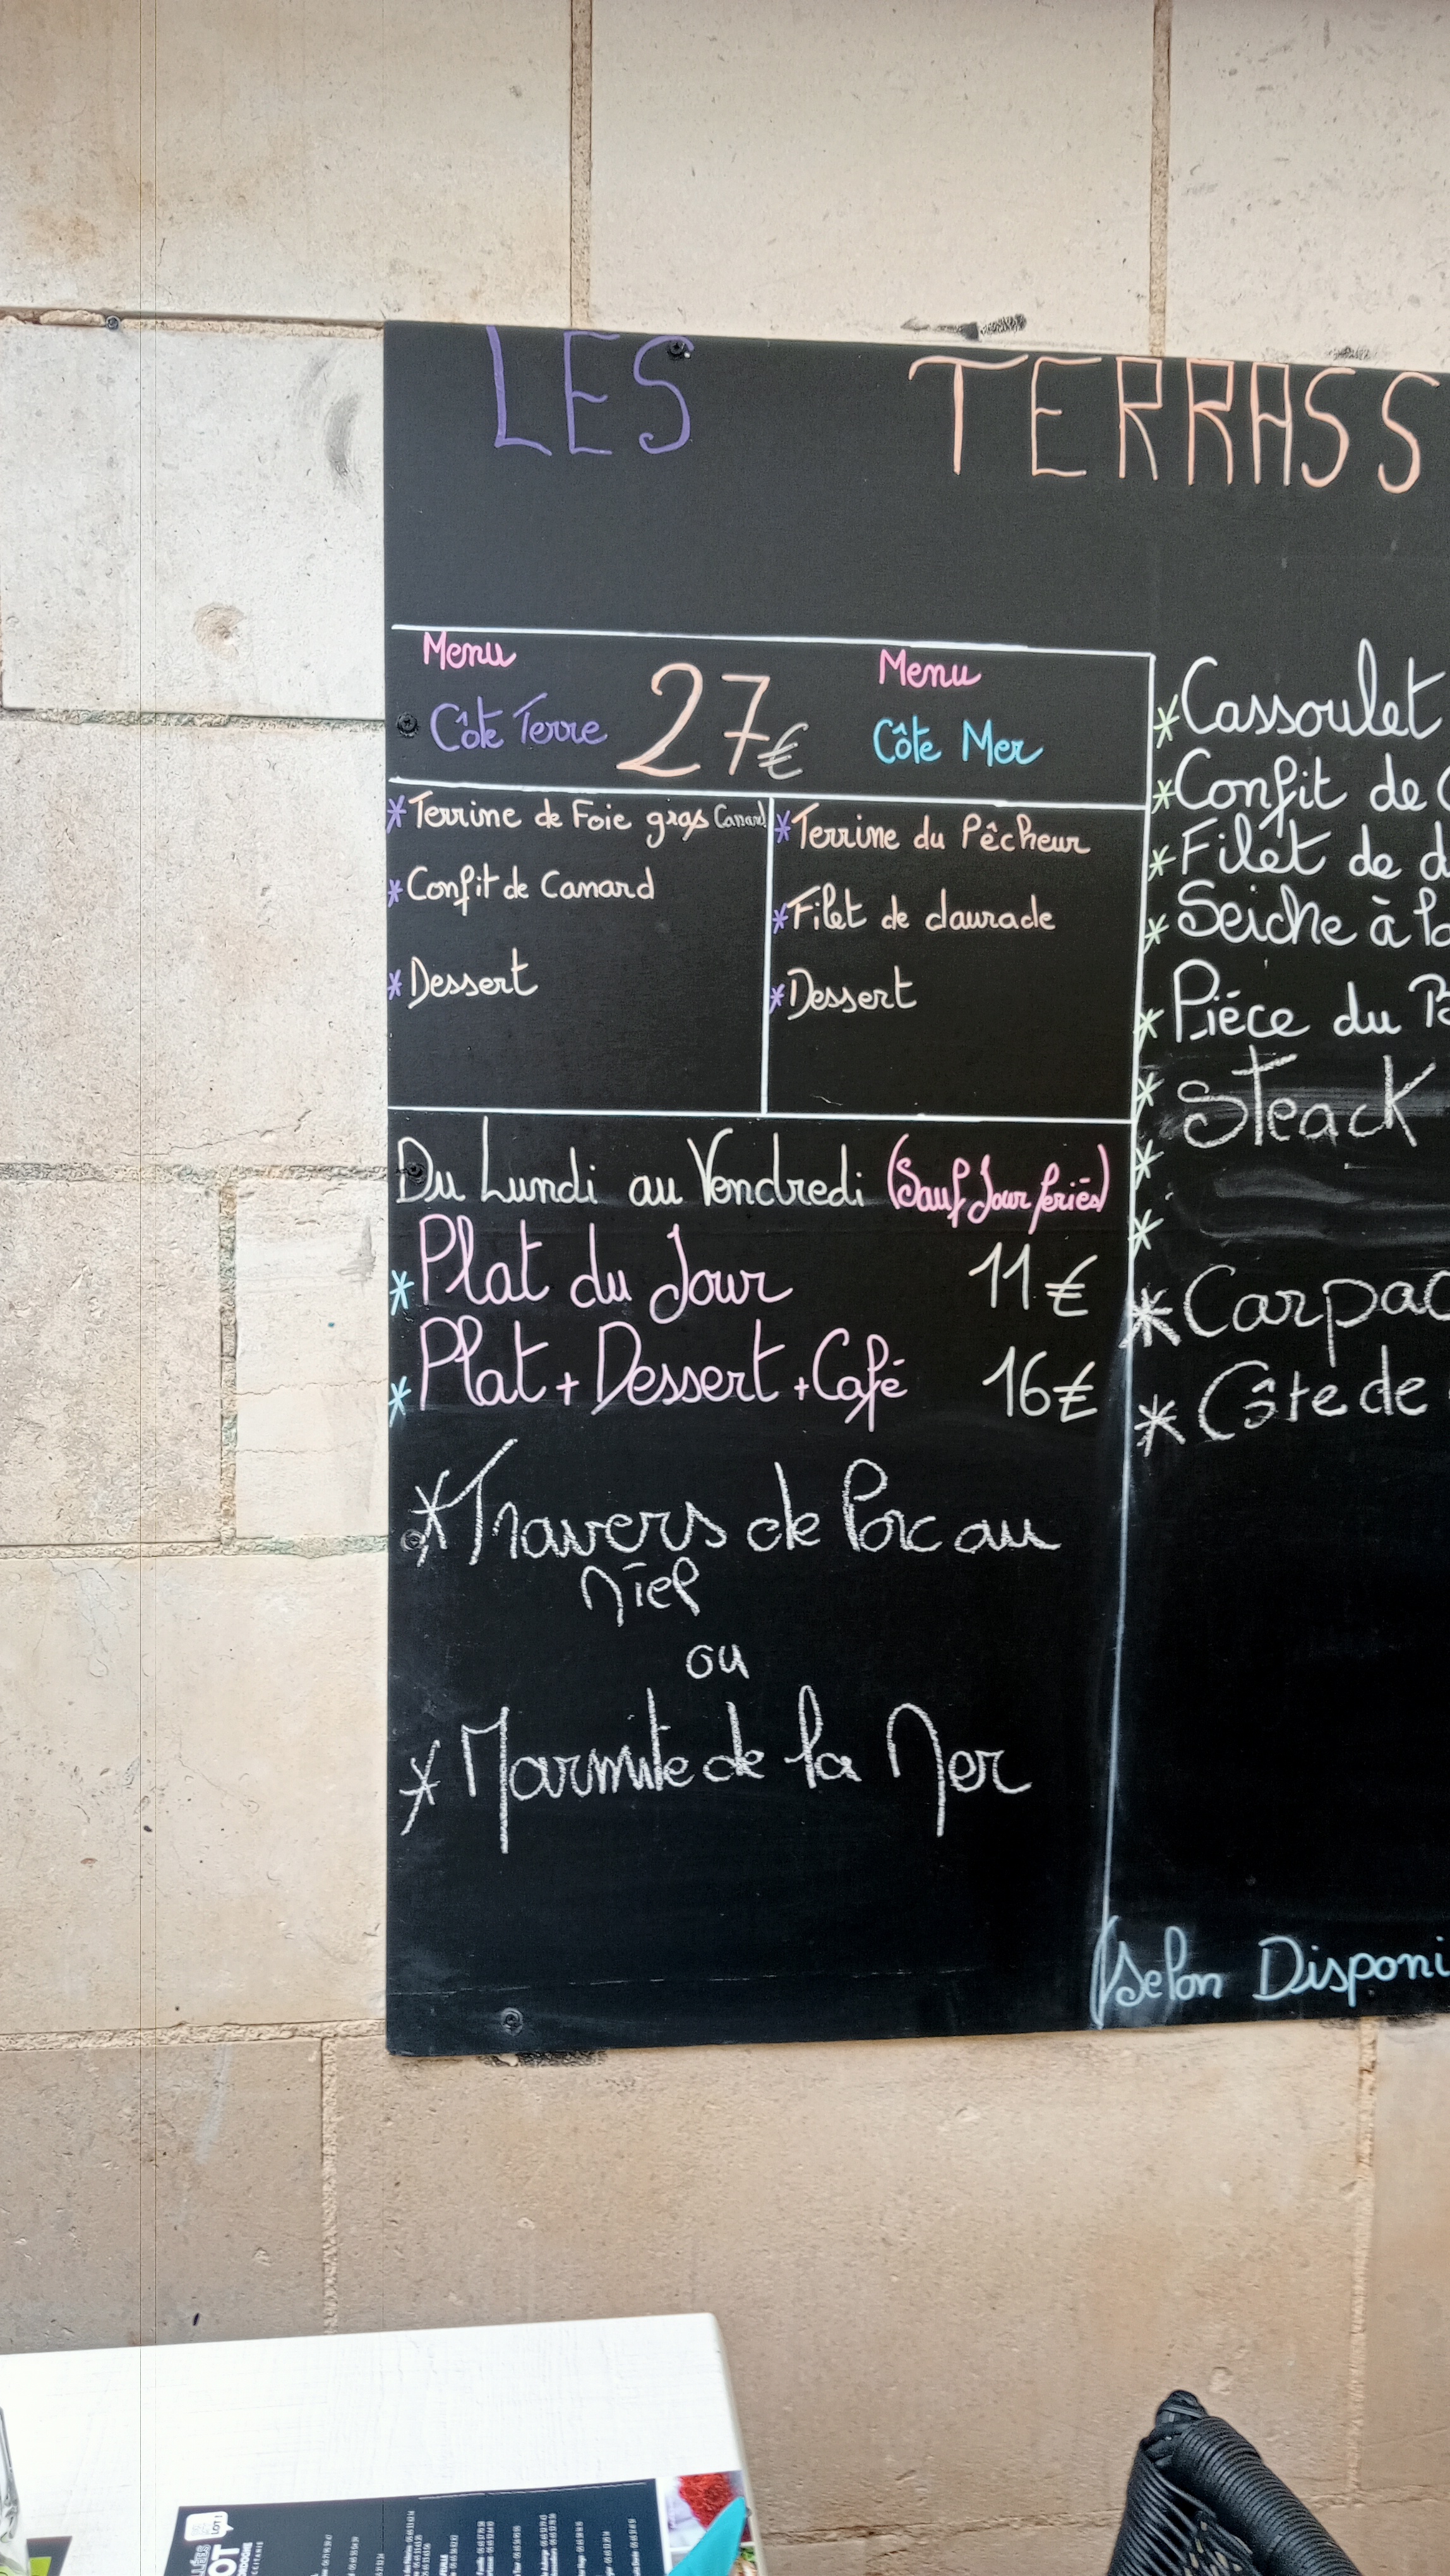 LES TERRASS
Menu
Côte Terre
27€
Menu
Côte Mer
*Terrine de Foie gras Canard
*Confit de Canard
*Dessert
*Terrine du Pêcheur
*Filet de daurade
*Dessert
Du Lundi au Vendredi (Sauf Jour feriés)
*Plat du Jour 11€
*Plat + Dessert + Café 16€
*Travers de Porc au
Miel
ou
*Marmite de la Mer
*Cassoulet
*Confit de
*Filet de d
*Seiche à la
*Piéce du
*Steack
*
*
*Carpac
*Côte de
(Selon Disponi
LOT